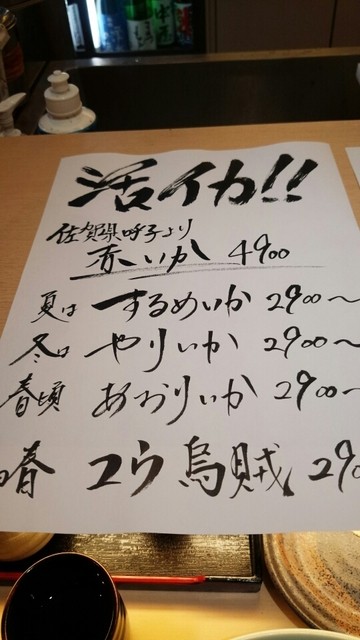 活イカ!!
佐賀県呼子より
赤いか 4900
夏は するめいか 2900〜
冬は やりいか 2900〜
春頃 あおりいか 2900〜
春 コウ烏賊 290